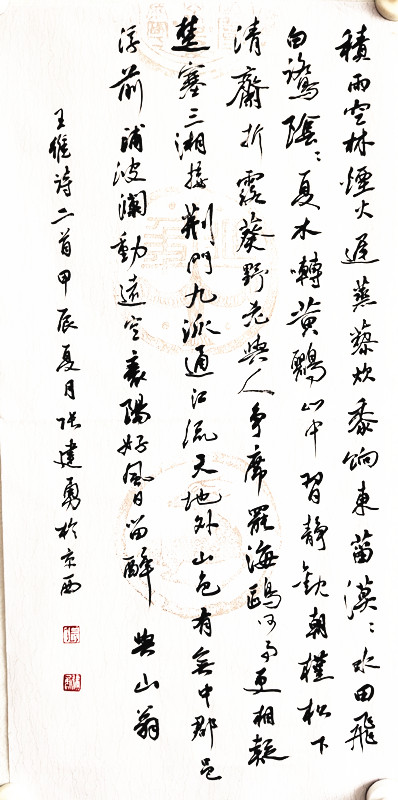 積雨空林煙火遲蒸藜炊黍餉東菑漠:水田飛
白鷺陰:夏木囀黄鸝山中習靜觀朝槿松下
清齋折露葵野老與人争席罷海鷗何事更相疑
楚塞三湘接荆門九派通江流天地外山色有無中郡邑
浮前浦波瀾動遠空襄陽好風日留醉與山翁
王維詩二首甲辰夏月張建勇於京西